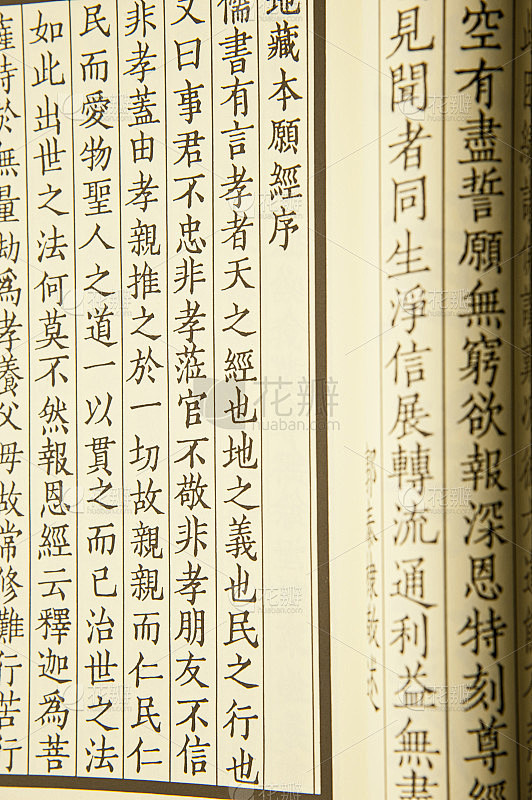 空有盡誓願無窮欲報深恩特刻尊經
見聞者同生淨信展轉流通利益無盡
地藏本願經序
儒書有言孝者天之經也地之義也民之行也
又曰事君不忠非孝蒞官不敬非孝朋友不信
非孝蓋由孝親推之於一切故親親而仁民仁
民而愛物聖人之道一以貫之而已治世之法
如此出世之法何莫不然報恩經云釋迦爲菩
薩時於無量劫爲孝養父母故常修難行苦行
花瓣
huaban.com